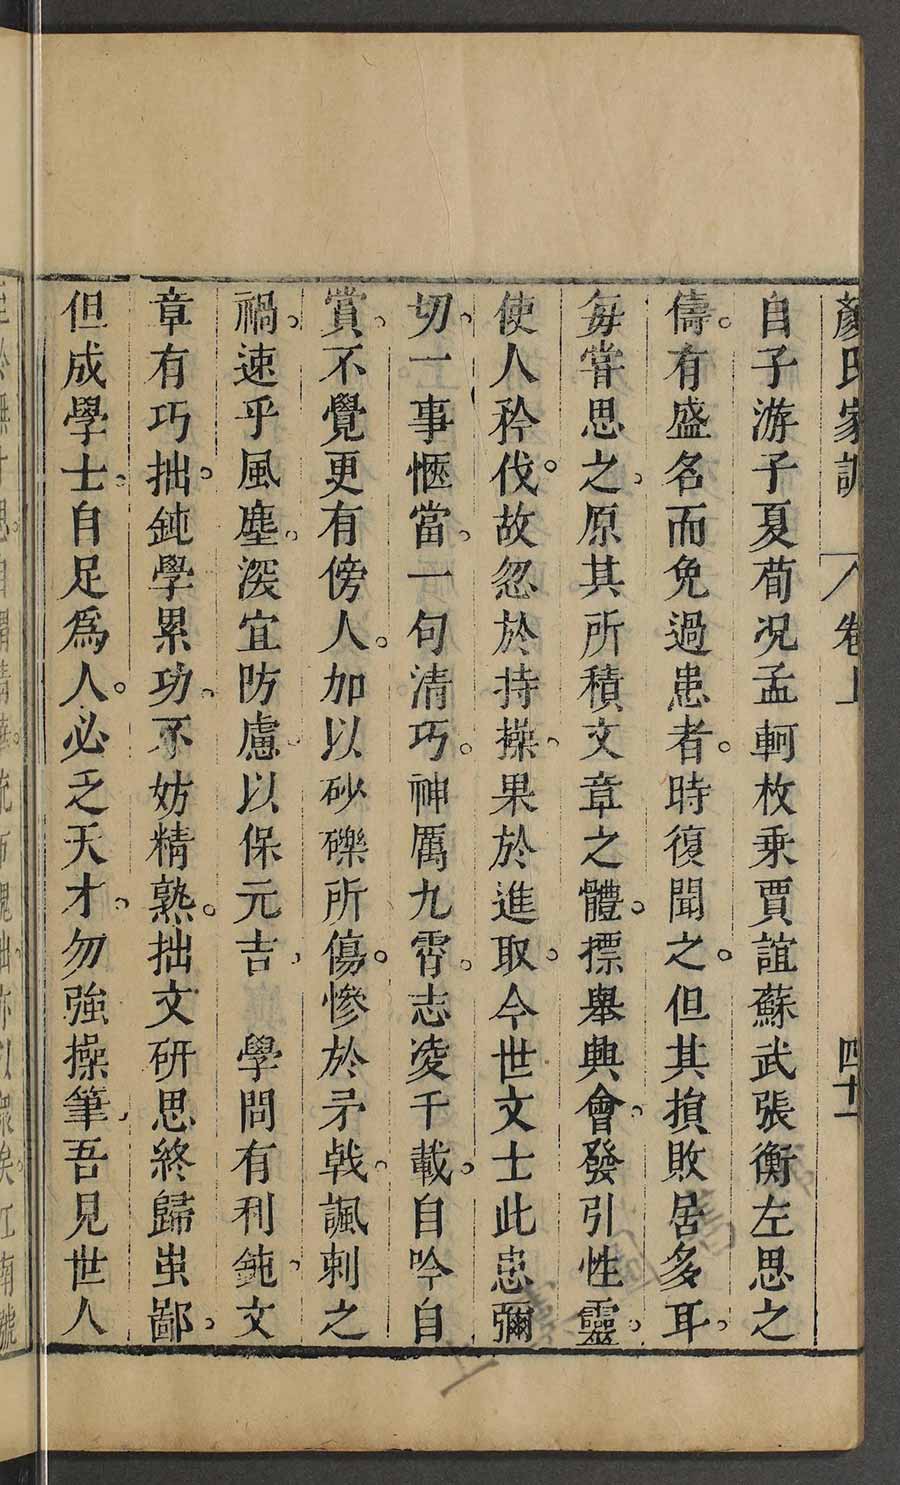 顏氏家訓 卷上 四十一
自子游子夏荀況孟軻枚乗賈誼蘇武張衡左思之
儔。有盛名而免過患者。時復聞之。但其損敗居多耳。
每嘗思之。原其所積文章之體。摽舉興會。發引性靈。
使人矜伐。故忽於持操。果於進取。今世文士此患彌
切。一事愜當。一句清巧。神厲九霄。志凌千載。自吟自
賞。不覺更有傍人。加以砂礫所傷。慘於矛戟。諷刺之
禍。速乎風塵。深宜防慮。以保元吉。 學問有利鈍。文
章有巧拙。鈍學累功。不妨精熟。拙文研思終歸蚩鄙。
但成學士。自足爲人。必乏天才。勿強操筆。吾見世人